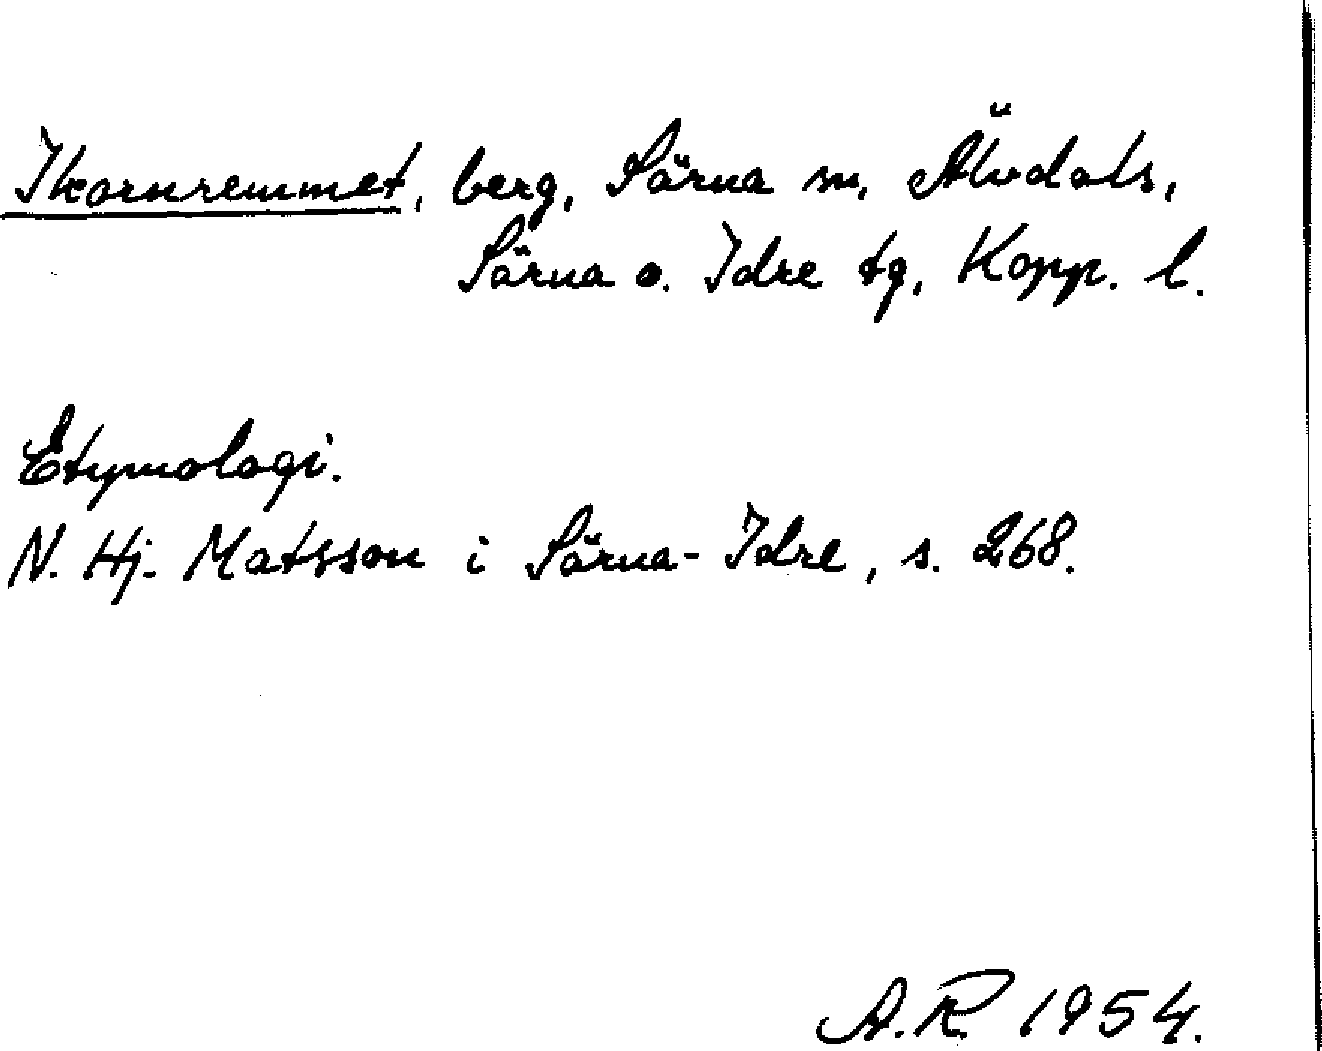 Ikornremmet, berg, Särna sn, Älvdals,
Särna o. Idre tg, Kopp. l.
Etymologi.
N. Hj. Matsson i Särna-Idre, s. 268.
A.R. 1954.